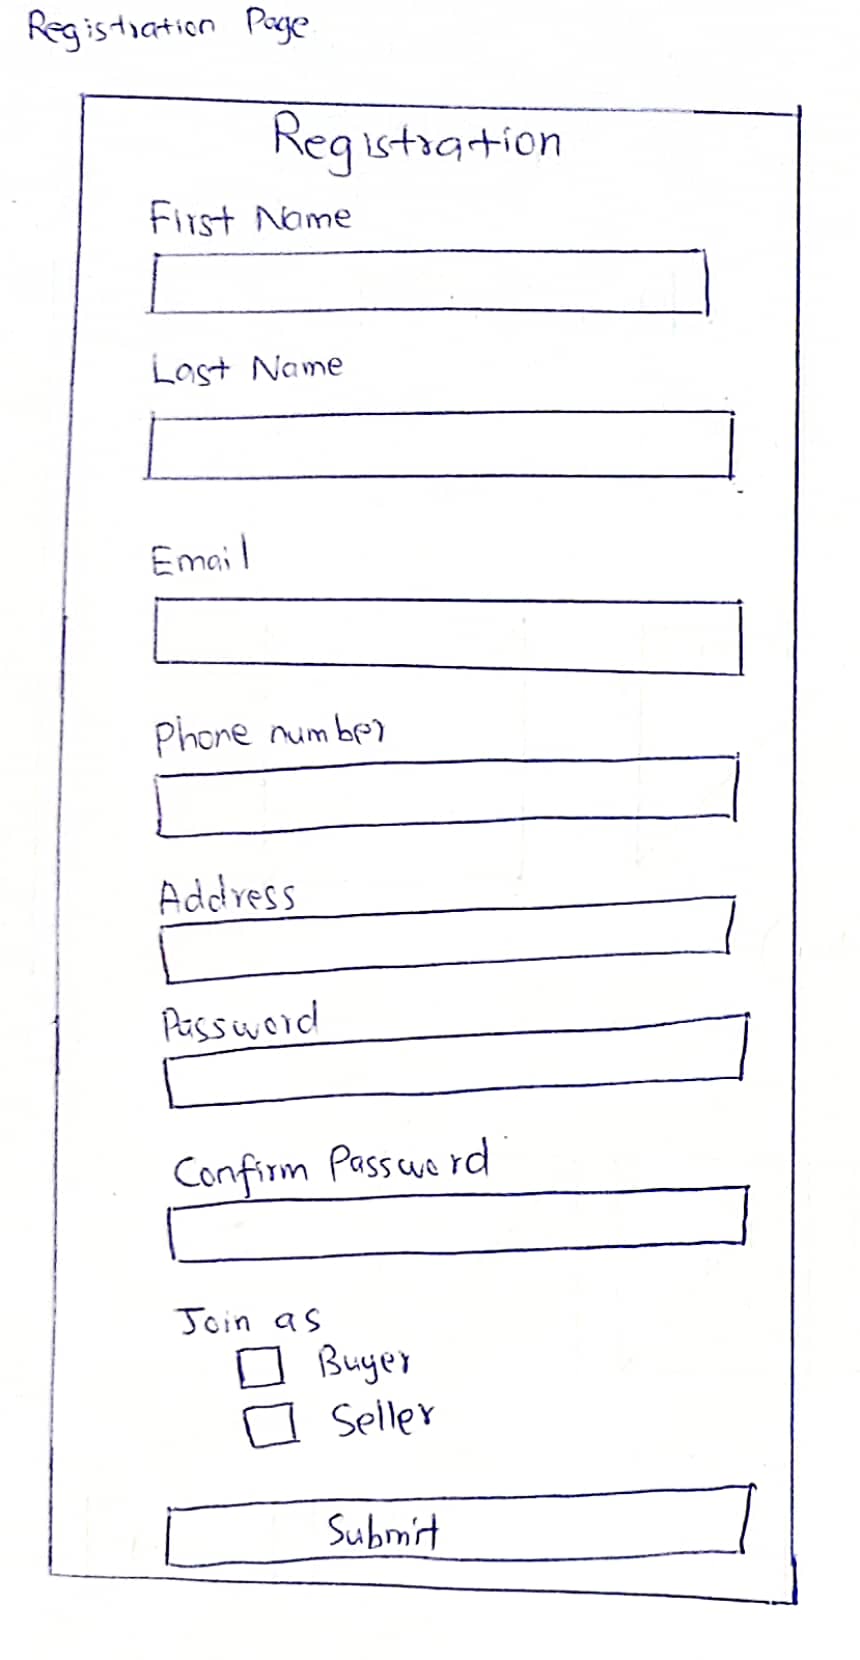 Registration Page
Registration
First Name
Last Name
Email
Phone number
Address
Password
Confirm Password
Join as
Buyer
Seller
Submit